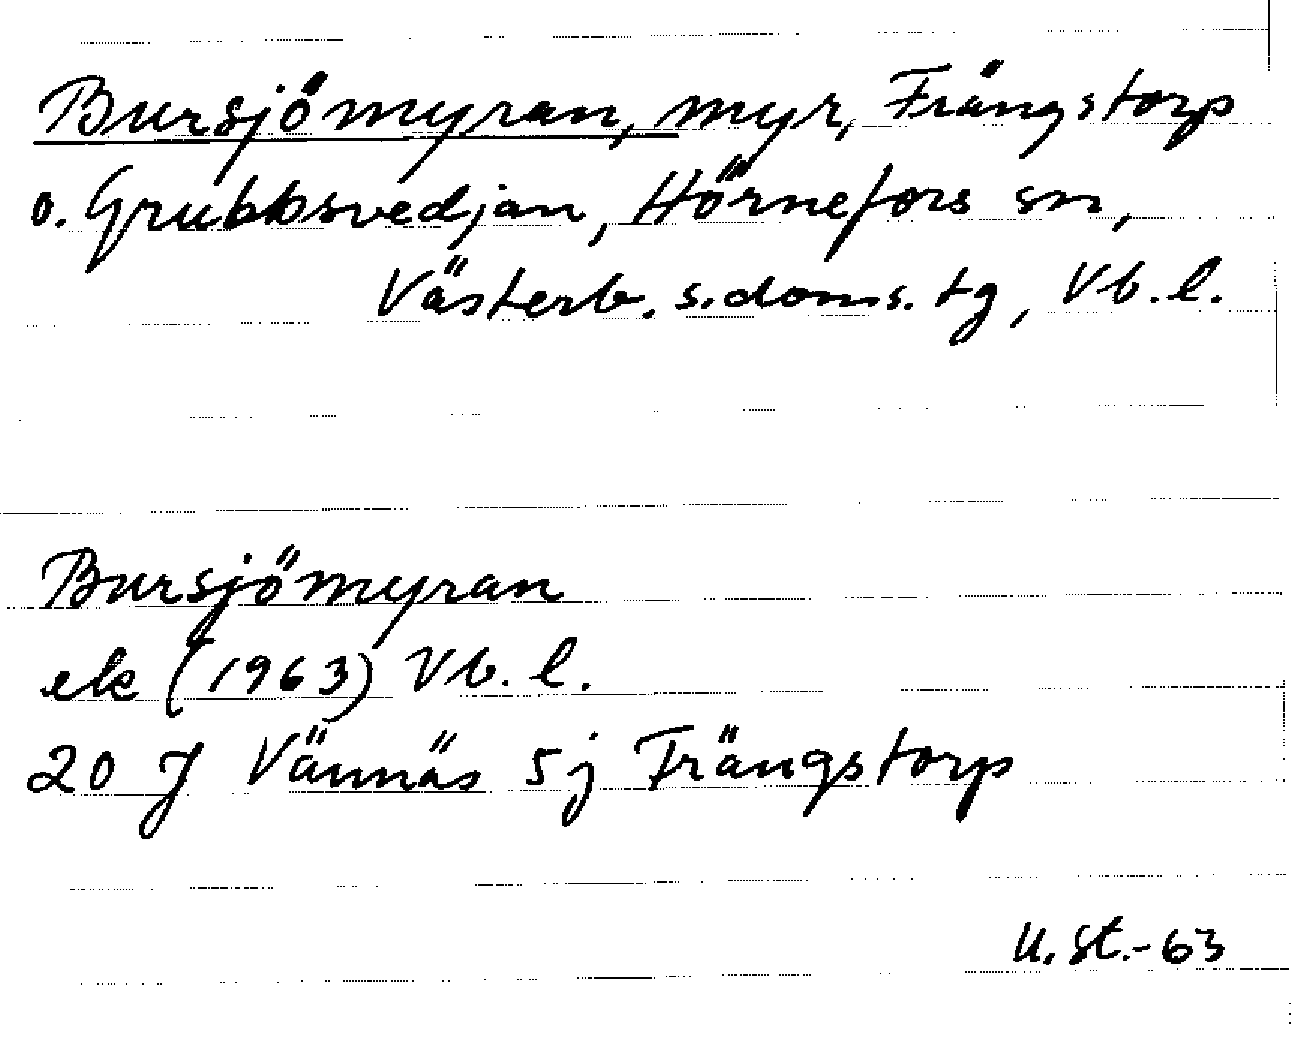 Bursjömyran, myr, Frängstorp
o. Grubbsvedjan, Hörnefors sn,
Västerb. s. doms. tg, Vb. l.
Bursjömyran
ek (1963) Vb. l.
20 J Vännäs 5j Frängstorp
U. St. - 63